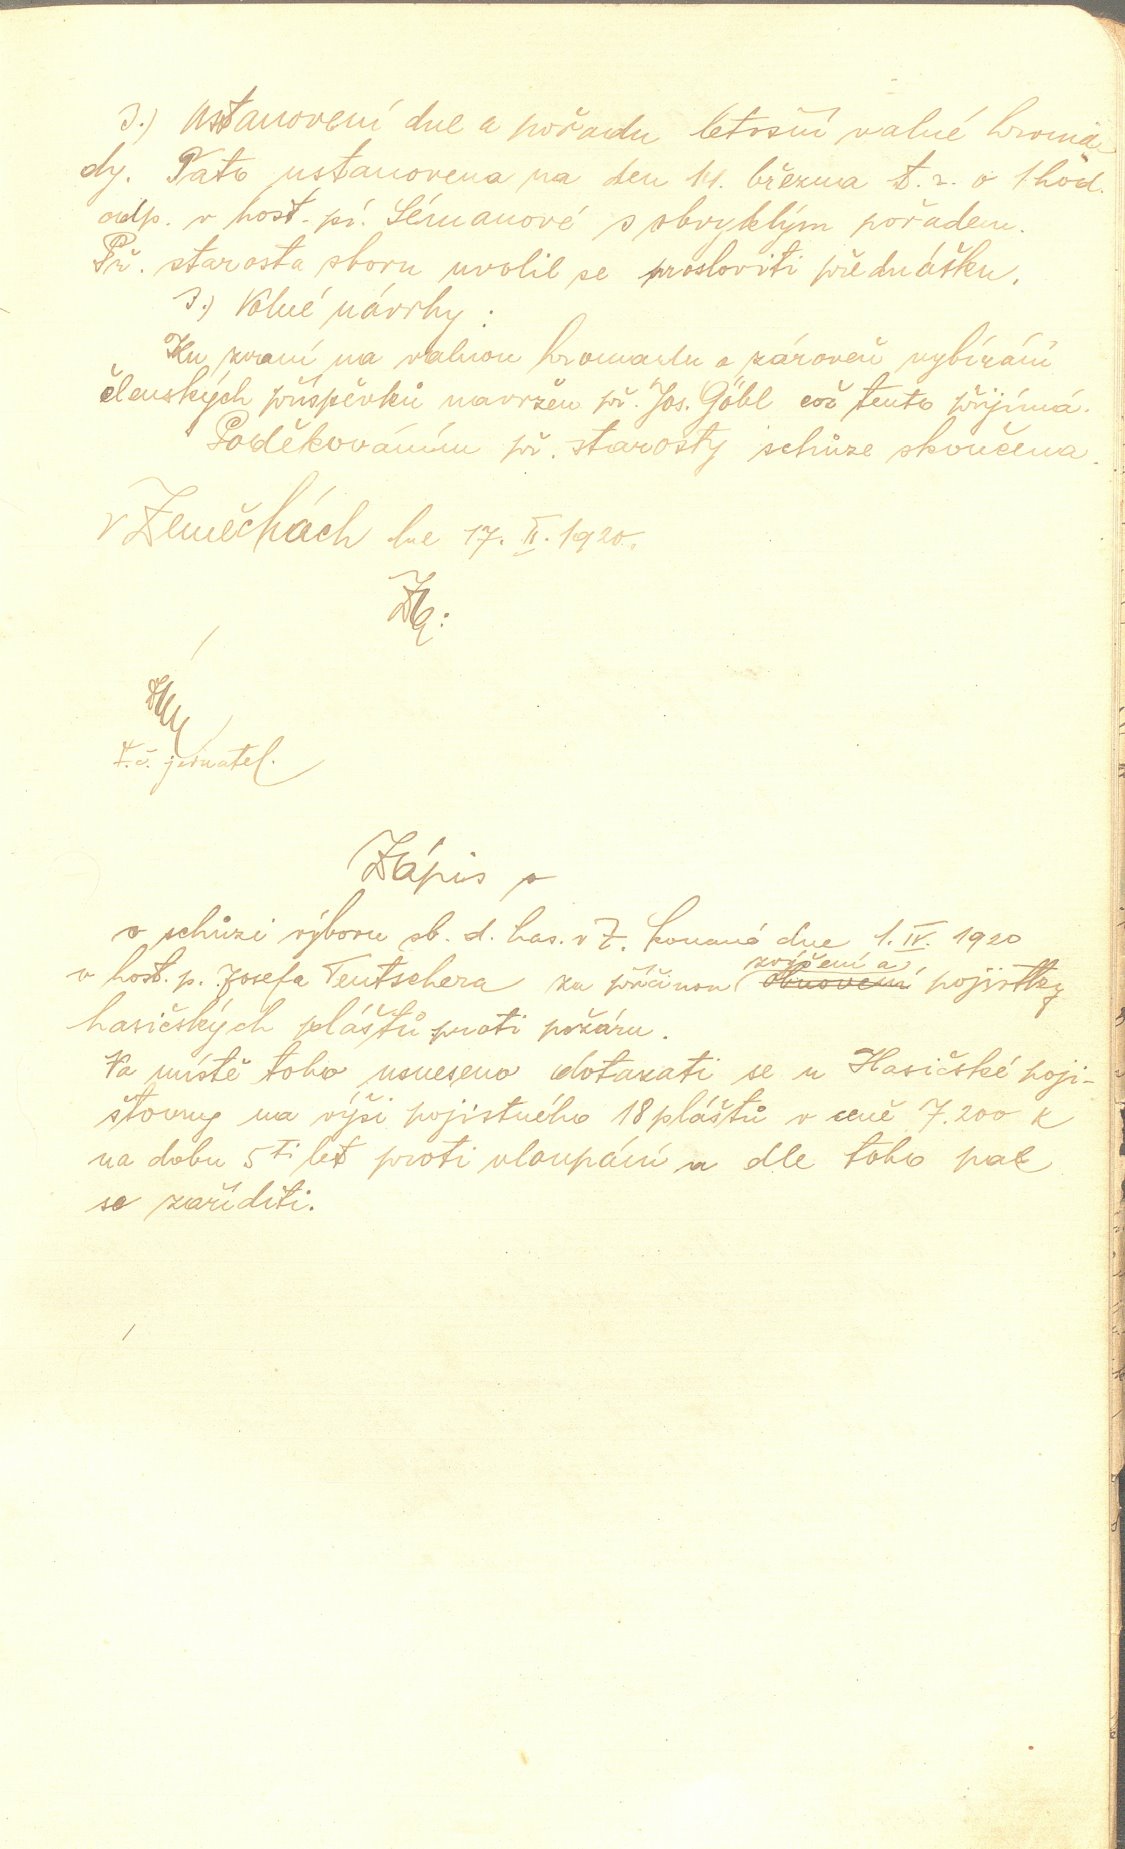 3.) Ustanovení dne a pořadu letošní valné hroma-
dy. Tato ustanovena na den 14. března t. r. o 1 hod.
odp. v host. pí. Sémanové s obvyklým pořadem.
Př. starosta sboru uvolil se prosloviti přednášku.
3.) Volné návrhy:
Ku zvaní na valnou hromadu a zároveň vybírání
členských příspěvků navržen př. Jos. Göbl což tento přijímá.
Poděkováním př. starosty schůze skončena.
V Zeměchách dne 17. II. 1920.
t.č. jednatel.
Zápis
o schůzi výboru sb. d. has. v Z. konané dne 1. IV. 1920
zvýšení a
v host. p. Josefa Teutschera za příčinou obnovení pojistky
hasičských plášťů proti požáru.
Na místě toho usneseno dotazati se u Hasičské poji-
šťovny na výši pojistného 18 plášťů v ceně 7.200 K
na dobu 5ti let proti vloupání a dle toho pak
se zaříditi.